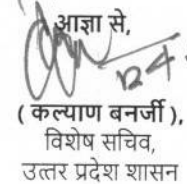 आज्ञा से,
( कल्याण बनर्जी ),
विशेष सचिव,
उत्तर प्रदेश शासन